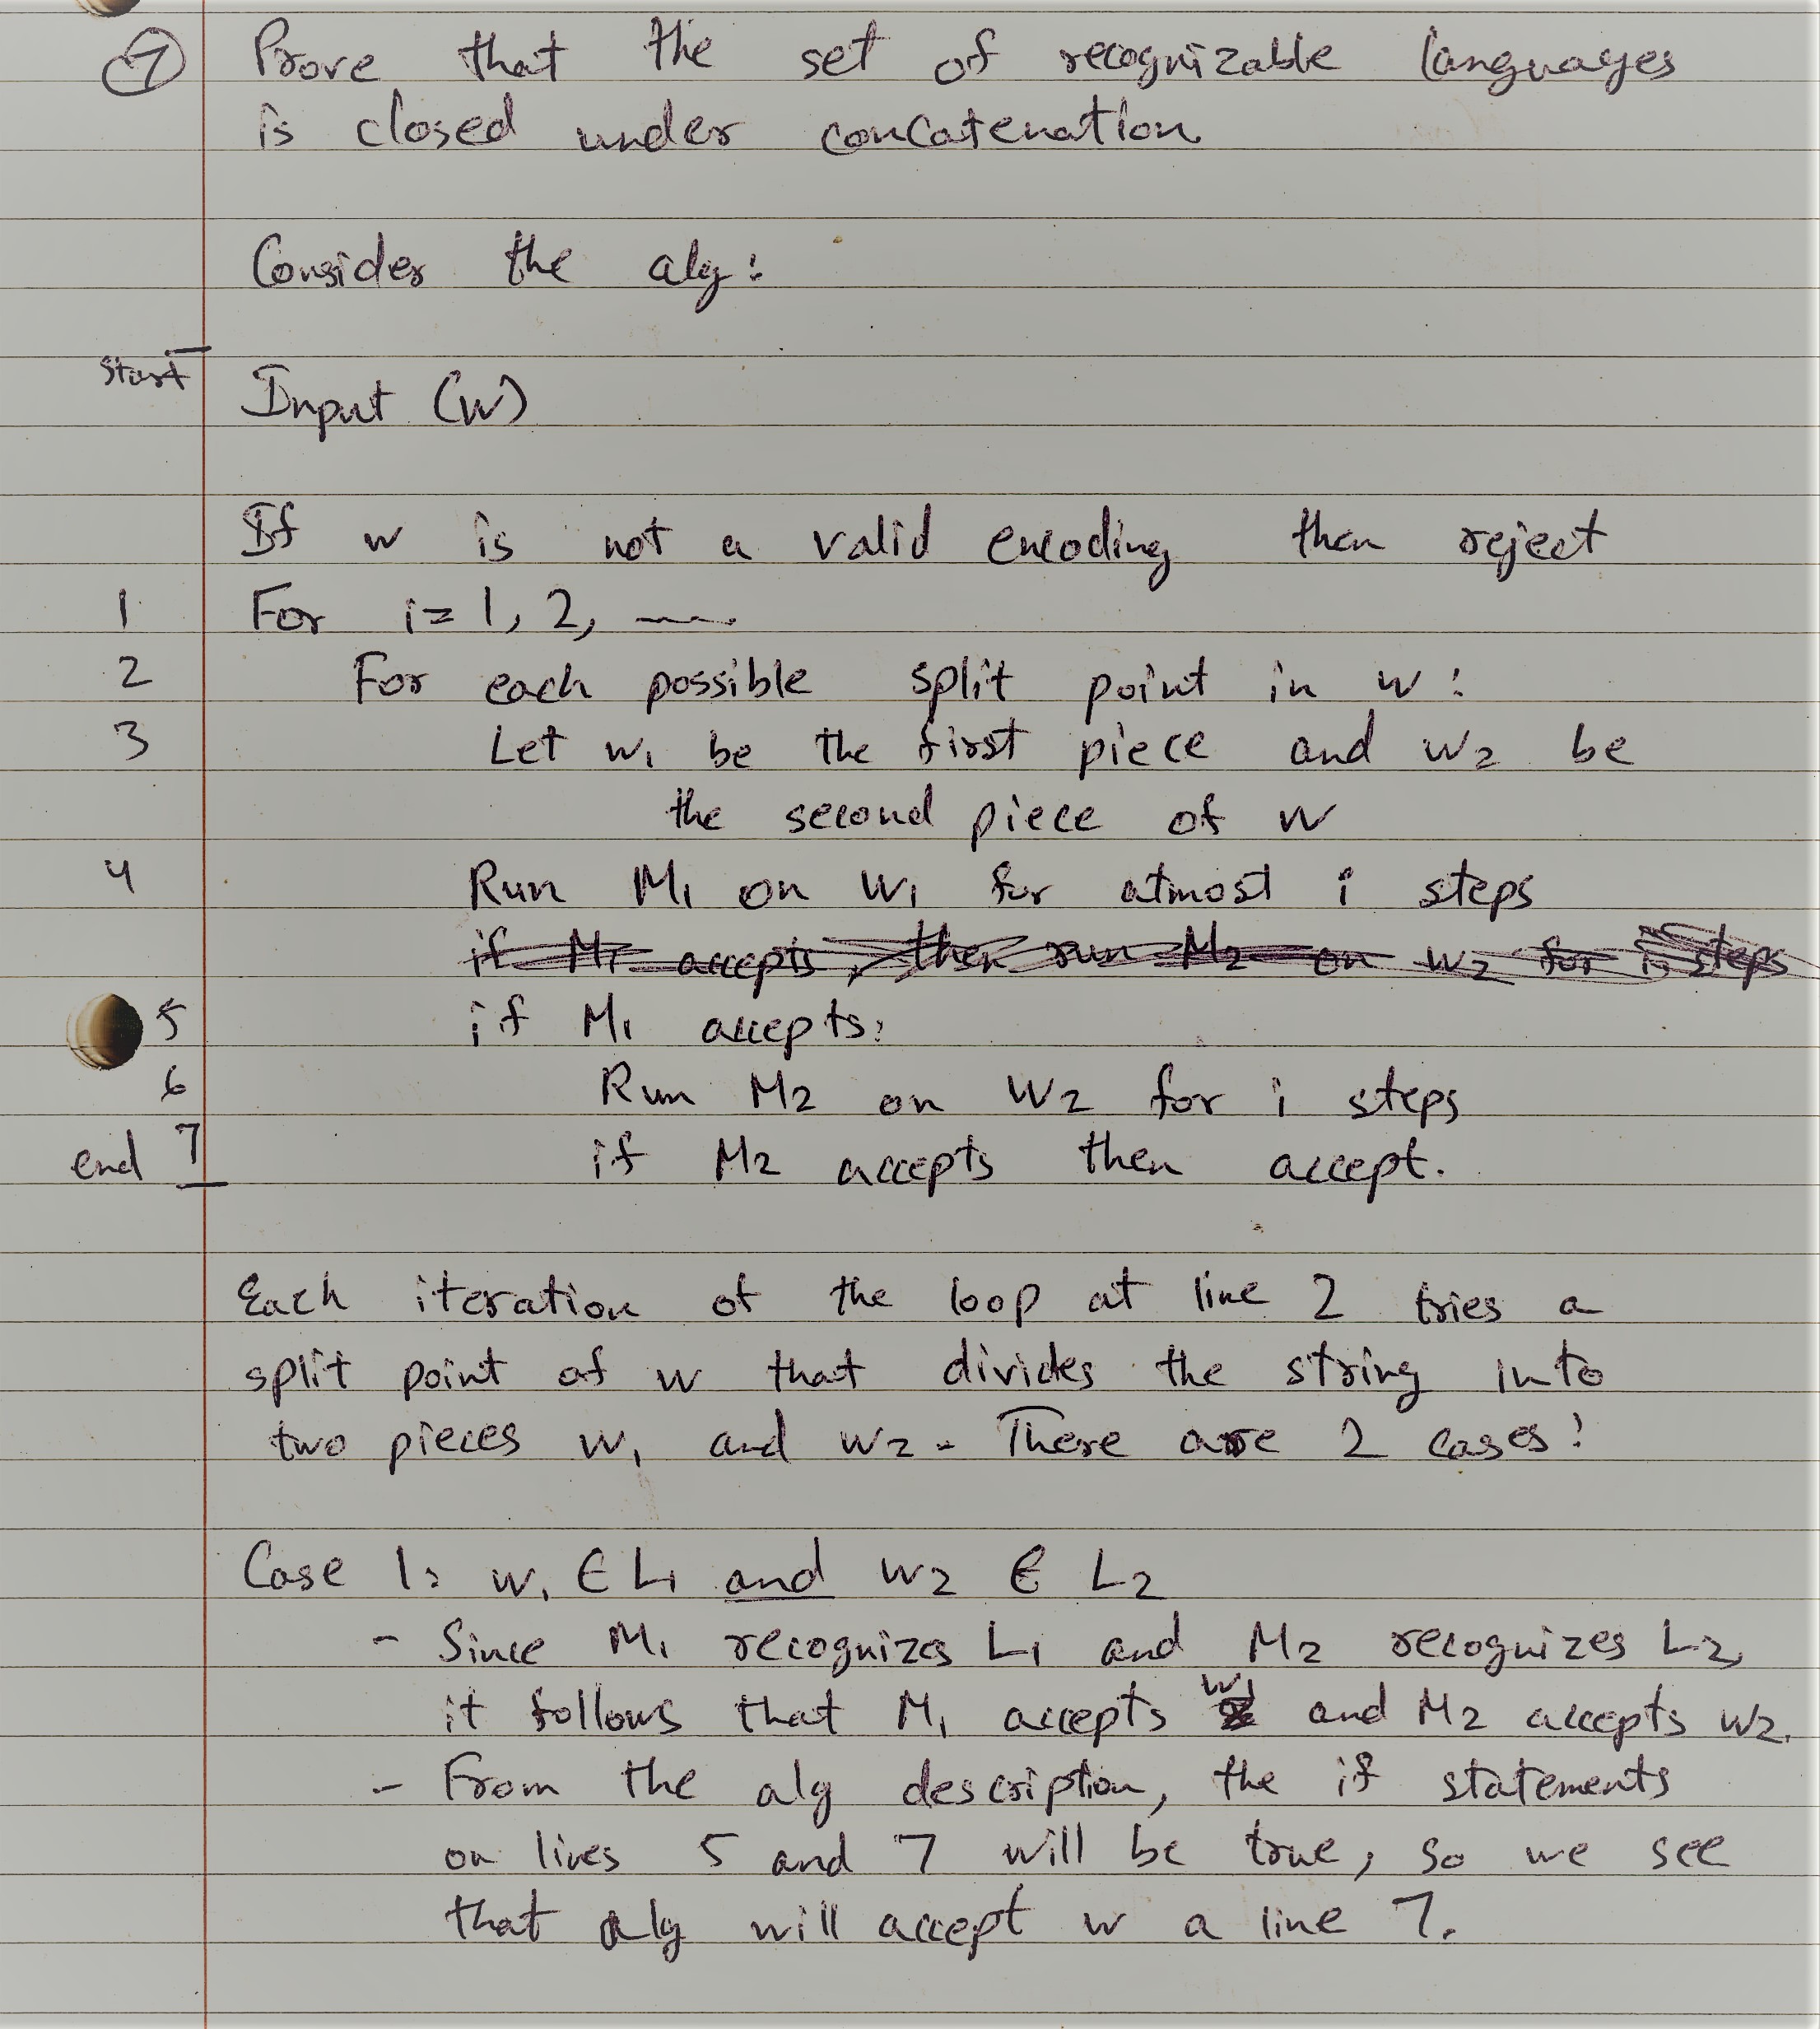 7 Prove that the set of recognizable languages
is closed under concatenation
Consider the alg:
start Input (w)
If w is not a valid encoding then reject
1 For i = 1, 2, ....
2 For each possible split point in w:
3 Let w₁ be the first piece and w₂ be
the second piece of w
4 Run M₁ on w₁ for atmost i steps
if M₁ accepts, then run M₂ on w₂ for i steps
5 if M₁ accepts:
6 Run M₂ on w₂ for i steps
end 7 if M₂ accepts then accept.
Each iteration of the loop at line 2 tries a
split point of w that divides the string into
two pieces w₁ and w₂. There are 2 cases:
Case 1: w₁ ∈ L₁ and w₂ ∈ L₂
- Since M₁ recognizes L₁ and M₂ recognizes L₂,
it follows that M₁ accepts w₁ and M₂ accepts w₂.
- From the alg description, the if statements
on lines 5 and 7 will be true, so we see
that alg will accept w a line 7.